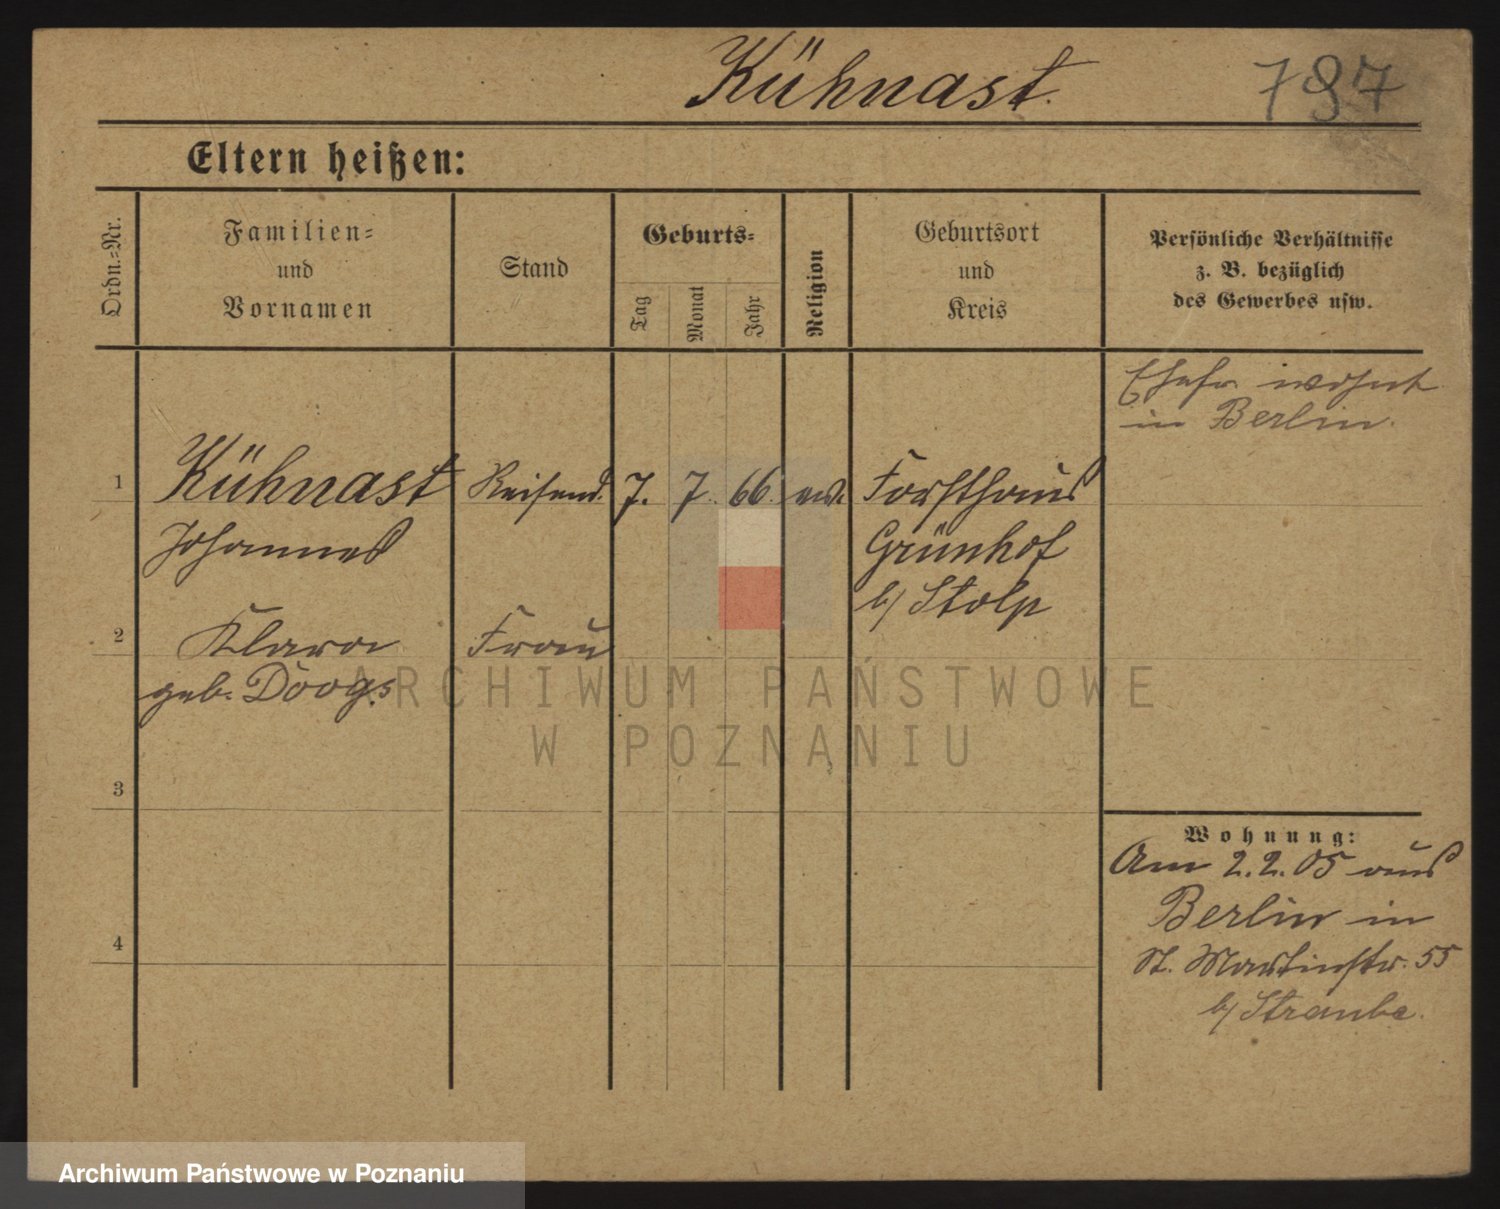 Kühnast.
787
Eltern heißen:
Ordn.-Nr.
Familien-
und
Vornamen
Stand
Geburts-
Tag
Monat
Jahr
Religion
Geburtsort
und
Kreis
Persönliche Verhältnisse
z. B. bezüglich
des Gewerbes usw.
Ehefr. wohnt
in Berlin.
1
Kühnast
Johannes
Reisend.
7.
7.
66.
ev.
Forsthaus
Grünhof
b/ Stolp
2
Klara
geb. Doogs
Frau
ARCHIWUM PAŃSTWOWE
W POZNANIU
3
4
Wohnung:
Am 2.2.05 aus
Berlin in
St. Martinstr. 55
b/ Straube.
Archiwum Państwowe w Poznaniu